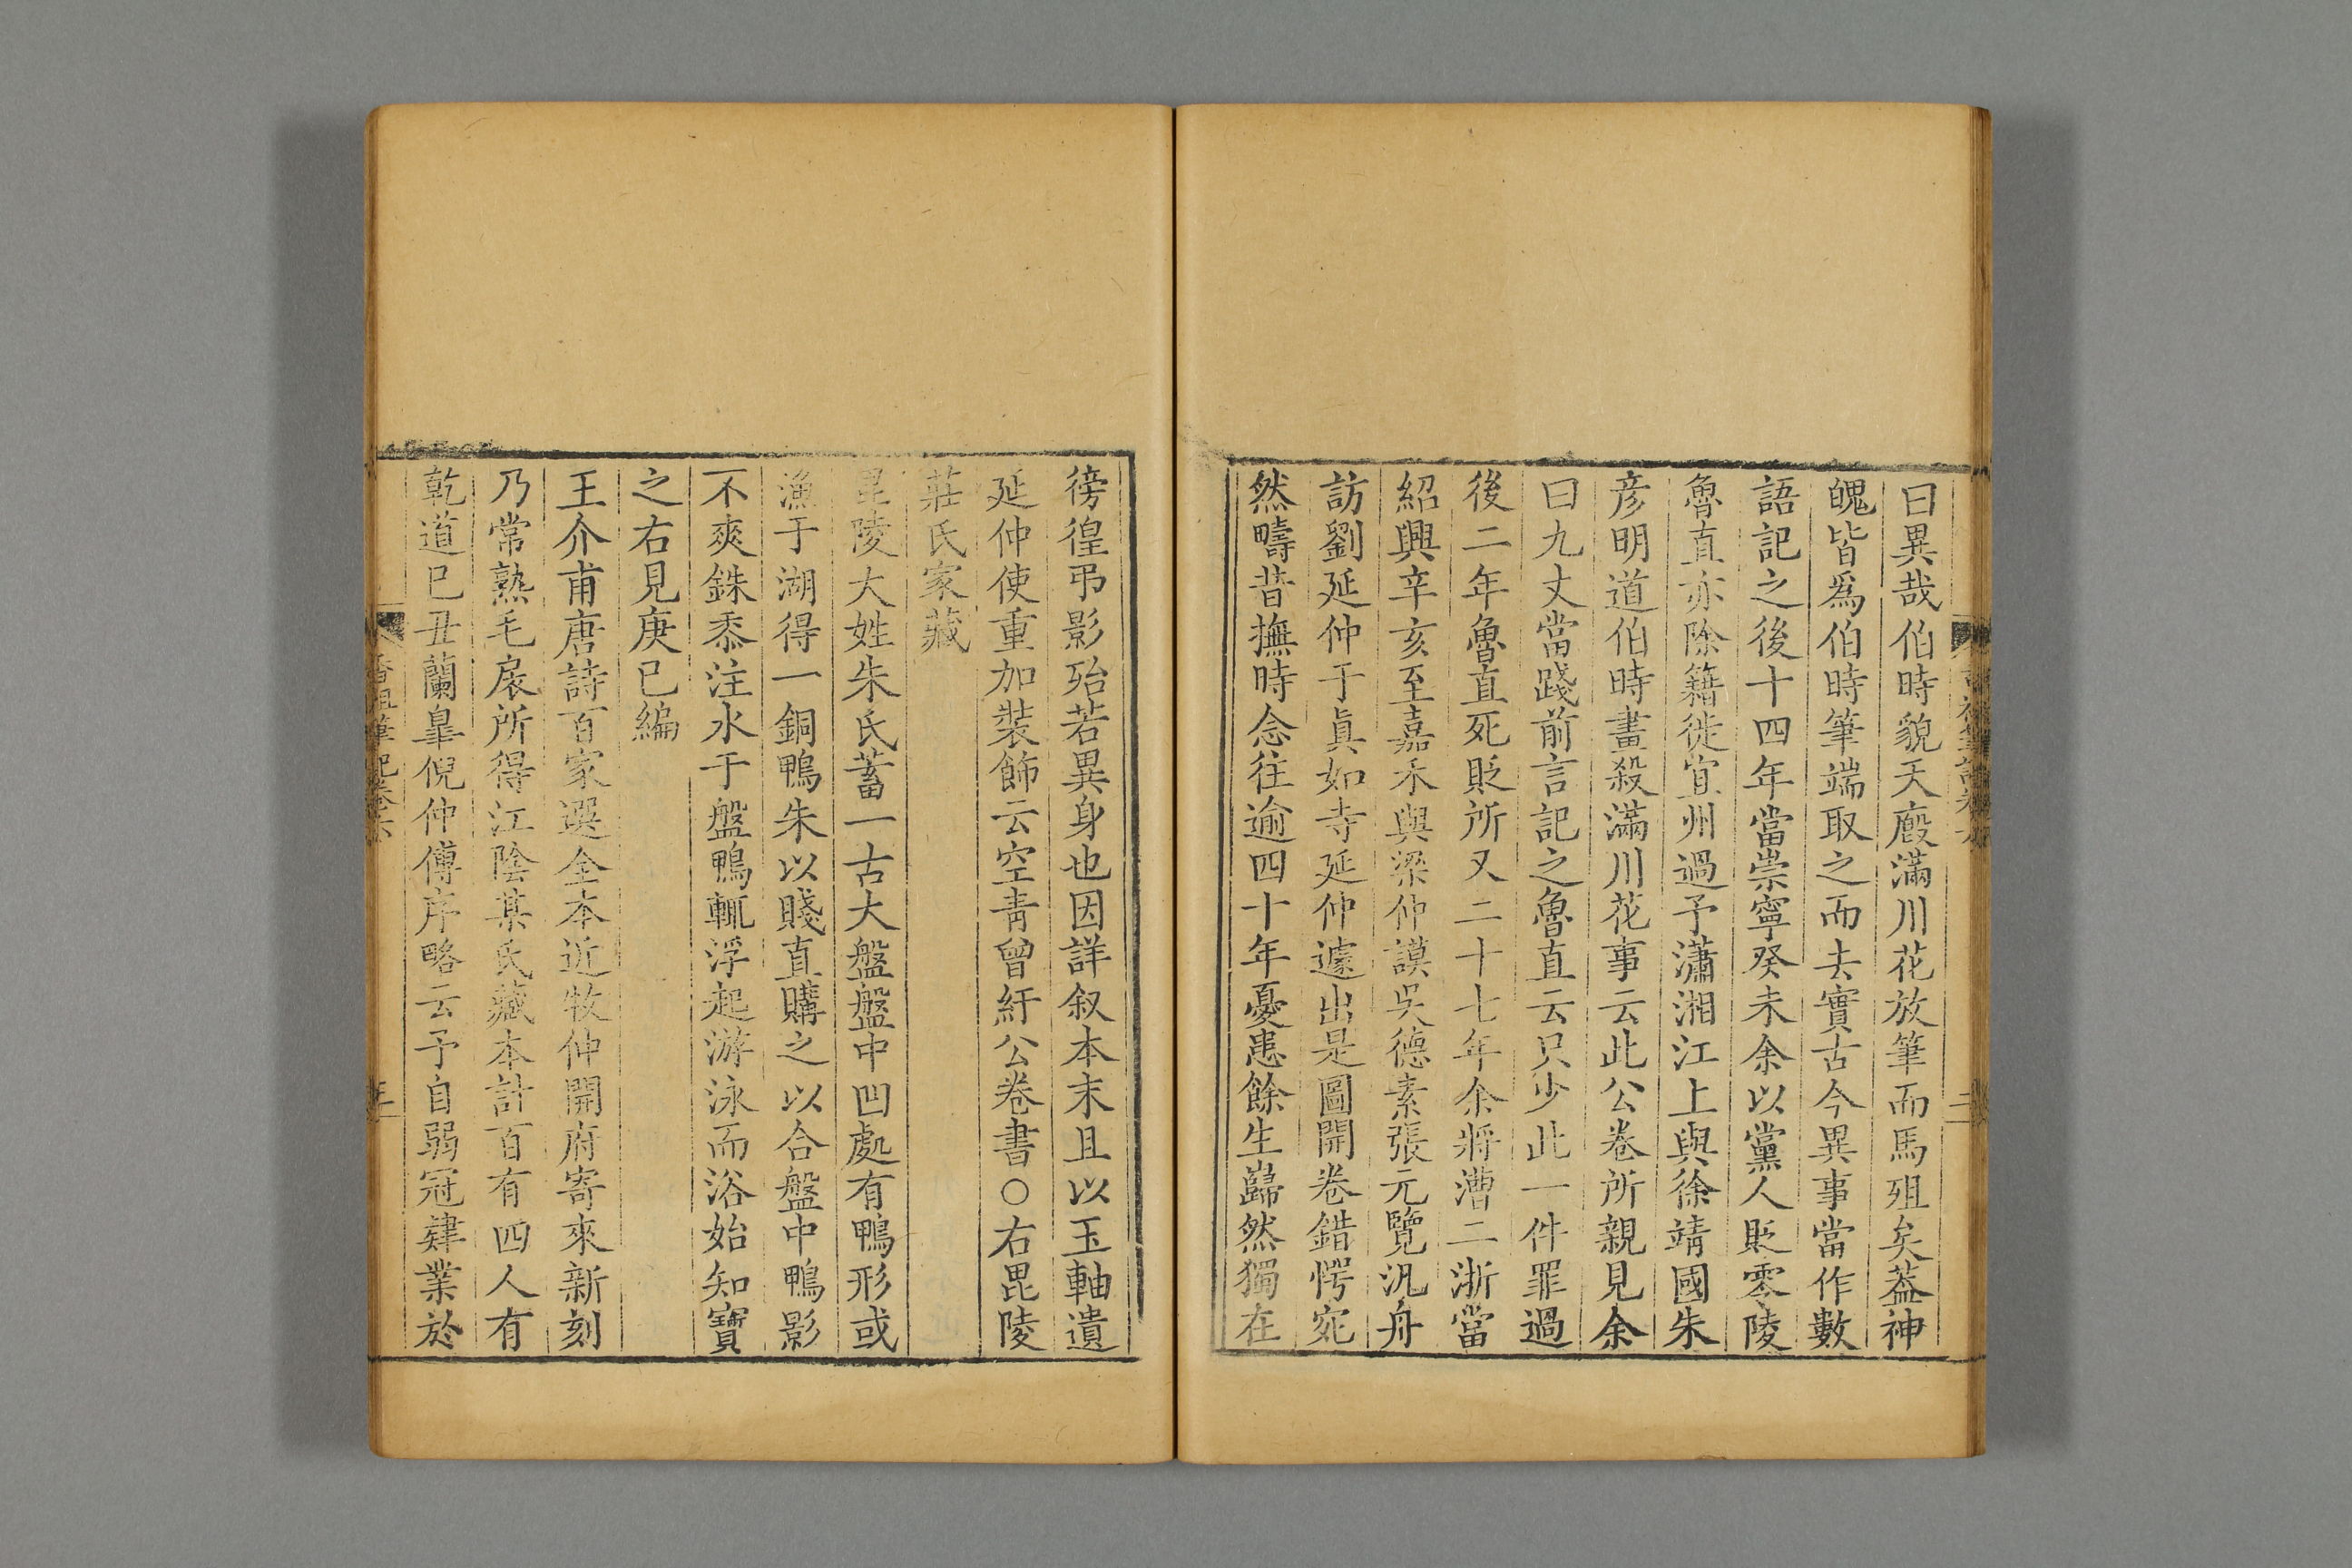 曰異哉伯時貌天廐滿川花放筆而馬殂矣葢神
魄皆爲伯時筆端取之而去實古今異事當作數
語記之後十四年當崇寧癸未余以黨人貶零陵
魯直亦除籍徙宜州過予瀟湘江上與徐靖國朱
彦明道伯時畫殺滿川花事云此公卷所親見余
曰九丈當踐前言記之魯直云只少此一件罪過
後二年魯直死貶所又二十七年余將漕二浙當
紹興辛亥至嘉禾與梁仲謨吳德素張元覽汎舟
訪劉延仲于眞如寺延仲遽出是圖開卷錯愕宛
然疇昔撫時念往逾四十年憂患餘生巋然獨在
徬徨弔影殆若異身也因詳叙本末且以玉軸遺
延仲使重加裝飾云空青曾紆公卷書○右毘陵
莊氏家藏
毘陵大姓朱氏蓄一古大盤盤中凹處有鴨形或
漁于湖得一銅鴨朱以賤直購之以合盤中鴨影
不爽銖黍注水于盤鴨輒浮起游泳而浴始知寶
之右見庚巳編
王介甫唐詩百家選全本近牧仲開府寄來新刻
乃常熟毛扆所得江陰某氏藏本計百有四人有
乾道已丑蘭皐倪仲傅序略云予自弱冠肄業於
香祖筆記卷六